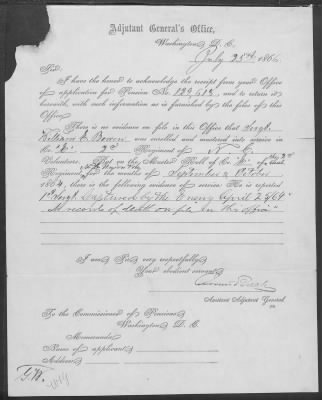 Adjutant General's Office,
Washington, D. C.
July 25th 1866
Sir:
I have the honor to acknowledge the receipt from your Office
of application for Pension No. 122,613, and to return it
herewith, with such information as is furnished by the files of this
Office.
There is no evidence on file in this Office that Sergt
William E. Brown was enrolled and mustered into service in
Co. 2d Regiment of N. C.
Volunteers. But on the Muster Roll of Co.
Regiment for the months of September & October
1864, there is the following evidence of service: He is reported
1st Sergt Captured by the Enemy April 2 1864
No record of death on file in this office
I am Sir very respectfully
Your obedient servant
Assistant Adjutant General
To the Commissioner of Pensions
Washington D. C.
Memoranda
Name of applicant
Address